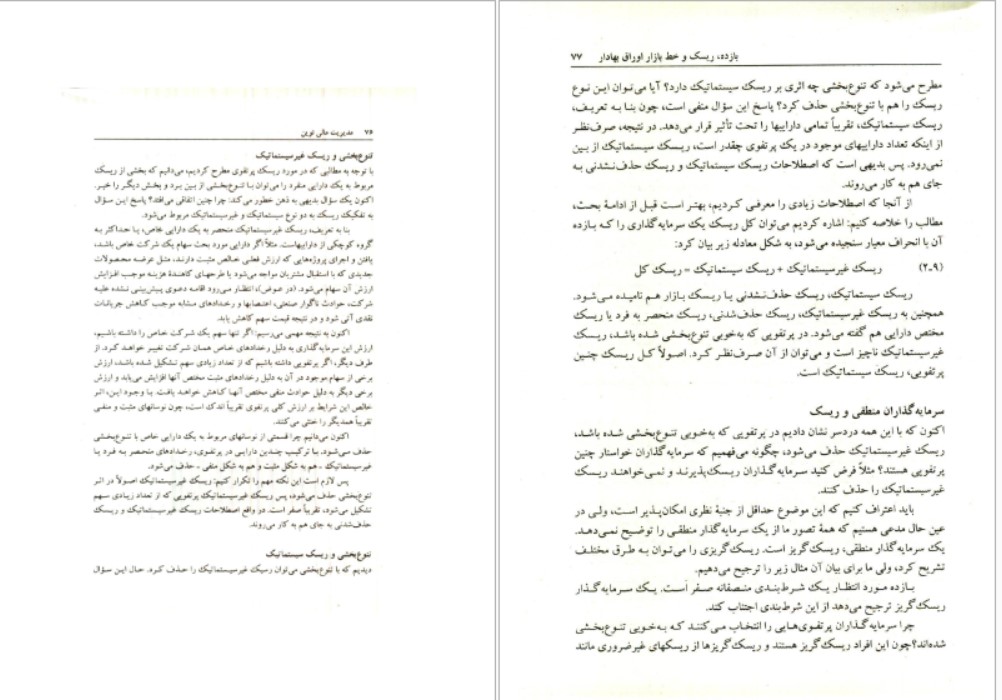 ۷۶ مدیریت مالی نوین
تنوع‌بخشی و ریسک غیرسیستماتیک
با توجه به مطالبی که در مورد ریسک پرتفوی مطرح کردیم، می‌دانیم که بخشی از ریسک
مربوط به یک دارایی منفرد را می‌توان با تنوع‌بخشی از بین برد و بخش دیگر را خیر.
اکنون یک سؤال بدیهی به ذهن خطور می‌کند: چرا چنین اتفاقی می‌افتد؟ پاسخ این سؤال
به تفکیک ریسک به دو نوع سیستماتیک و غیرسیستماتیک مربوط می‌شود.
بنا به تعریف، ریسک غیرسیستماتیک منحصر به یک دارایی خاص، یا حداکثر به
گروه کوچکی از داراییهاست. مثلاً اگر دارایی مورد بحث سهام یک شرکت خاص باشد،
یافتن و اجرای پروژه‌هایی که ارزش فعلی خالص مثبت دارند، مثل عرضه محصولات
جدیدی که با استقبال مشتریان مواجه می‌شود یا طرحهای کاهندهٔ هزینه موجب افزایش
ارزش آن سهام می‌شود. (در عوض)، انتظار می‌رود اقامه دعوی پیش‌بینی نشده علیه
شرکت، حوادث ناگوار صنعتی، اعتصابها و رخدادهای مشابه موجب کاهش جریانات
نقدی آتی شود و در نتیجه قیمت سهم کاهش یابد.
اکنون به نتیجه مهمی می‌رسیم: اگر تنها سهم یک شرکت خاص را داشته باشیم،
ارزش این سرمایه‌گذاری به دلیل رخدادهای خاص همان شرکت تغییر خواهد کرد. از
طرف دیگر، اگر پرتفویی داشته باشیم که از تعداد زیادی سهم تشکیل شده باشد، ارزش
برخی از سهام موجود در آن به دلیل رخدادهای مثبت مختص آنها افزایش می‌یابد و ارزش
برخی دیگر به دلیل حوادث منفی مختص آنها کاهش خواهد یافت. با وجود این، اثر
خالص این شرایط بر ارزش کلی پرتفوی تقریباً اندک است، چون نوسانهای مثبت و منفی
تقریباً همدیگر را خنثی می‌کنند.
اکنون می‌دانیم چرا قسمتی از نوسانهای مربوط به یک دارایی خاص با تنوع‌بخشی
حذف می‌شود. با ترکیب چندین دارایی در پرتفوی، رخدادهای منحصر به فرد یا
غیرسیستماتیک - هم به شکل مثبت و هم به شکل منفی - حذف می‌شود.
پس لازم است این نکته مهم را تکرار کنیم: ریسک غیرسیستماتیک اصولاً در اثر
تنوع‌بخشی حذف می‌شود، پس ریسک غیرسیستماتیک پرتفویی که از تعداد زیادی سهم
تشکیل می‌شود، تقریباً صفر است. در واقع اصطلاحات ریسک غیرسیستماتیک و ریسک
حذف‌شدنی به جای هم به کار می‌روند.
تنوع‌بخشی و ریسک سیستماتیک
دیدیم که با تنوع‌بخشی می‌توان رسیک غیرسیستماتیک را حذف کرد. حال این سؤال
بازده، ریسک و خط بازار اوراق بهادار ۷۷
مطرح می‌شود که تنوع‌بخشی چه اثری بر ریسک سیستماتیک دارد؟ آیا می‌توان این نوع
ریسک را هم با تنوع‌بخشی حذف کرد؟ پاسخ این سؤال منفی است، چون بنا به تعریف،
ریسک سیستماتیک، تقریباً تمامی داراییها را تحت تأثیر قرار می‌دهد. در نتیجه، صرف‌نظر
از اینکه تعداد داراییهای موجود در یک پرتفوی چقدر است، ریسک سیستماتیک از بین
نمی‌رود. پس بدیهی است که اصطلاحات ریسک سیستماتیک و ریسک حذف‌نشدنی به
جای هم به کار می‌روند.
از آنجا که اصطلاحات زیادی را معرفی کردیم، بهتر است قبل از ادامهٔ بحث،
مطالب را خلاصه کنیم: اشاره کردیم می‌توان کل ریسک یک سرمایه‌گذاری را که بازده
آن با انحراف معیار سنجیده می‌شود، به شکل معادله زیر بیان کرد:
(۹ـ۲) ریسک غیرسیستماتیک + ریسک سیستماتیک = ریسک کل
ریسک سیستماتیک، ریسک حذف‌نشدنی یا ریسک بازار هم نامیده می‌شود.
همچنین به ریسک غیرسیستماتیک، ریسک حذف‌شدنی، ریسک منحصر به فرد یا ریسک
مختص دارایی هم گفته می‌شود. در پرتفویی که به‌خوبی تنوع‌بخشی شده باشد، ریسک
غیرسیستماتیک ناچیز است و می‌توان از آن صرف‌نظر کرد. اصولاً کل ریسک چنین
پرتفویی، ریسک سیستماتیک است.
سرمایه‌گذاران منطقی و ریسک
اکنون که با این همه دردسر نشان دادیم در پرتفویی که به‌خوبی تنوع‌بخشی شده باشد،
ریسک غیرسیستماتیک حذف می‌شود، چگونه می‌فهمیم که سرمایه‌گذاران خواستار چنین
پرتفویی هستند؟ مثلاً فرض کنید سرمایه‌گذاران ریسک‌پذیرند و نمی‌خواهند ریسک
غیرسیستماتیک را حذف کنند.
باید اعتراف کنیم که این موضوع حداقل از جنبهٔ نظری امکان‌پذیر است، ولی در
عین حال مدعی هستیم که همهٔ تصور ما از یک سرمایه‌گذار منطقی را توضیح نمی‌دهد.
یک سرمایه‌گذار منطقی، ریسک‌گریز است. ریسک‌گریزی را می‌توان به طرق مختلف
تشریح کرد، ولی ما برای بیان آن مثال زیر را ترجیح می‌دهیم.
بازده مورد انتظار یک شرط‌بندی منصفانه صفر است. یک سرمایه‌گذار
ریسک‌گریز ترجیح می‌دهد از این شرط‌بندی اجتناب کند.
چرا سرمایه‌گذاران پرتفوی‌هایی را انتخاب می‌کنند که به‌خوبی تنوع‌بخشی
شده‌اند؟ چون این افراد ریسک‌گریز هستند و ریسک‌گریزها از ریسکهای غیرضروری مانند